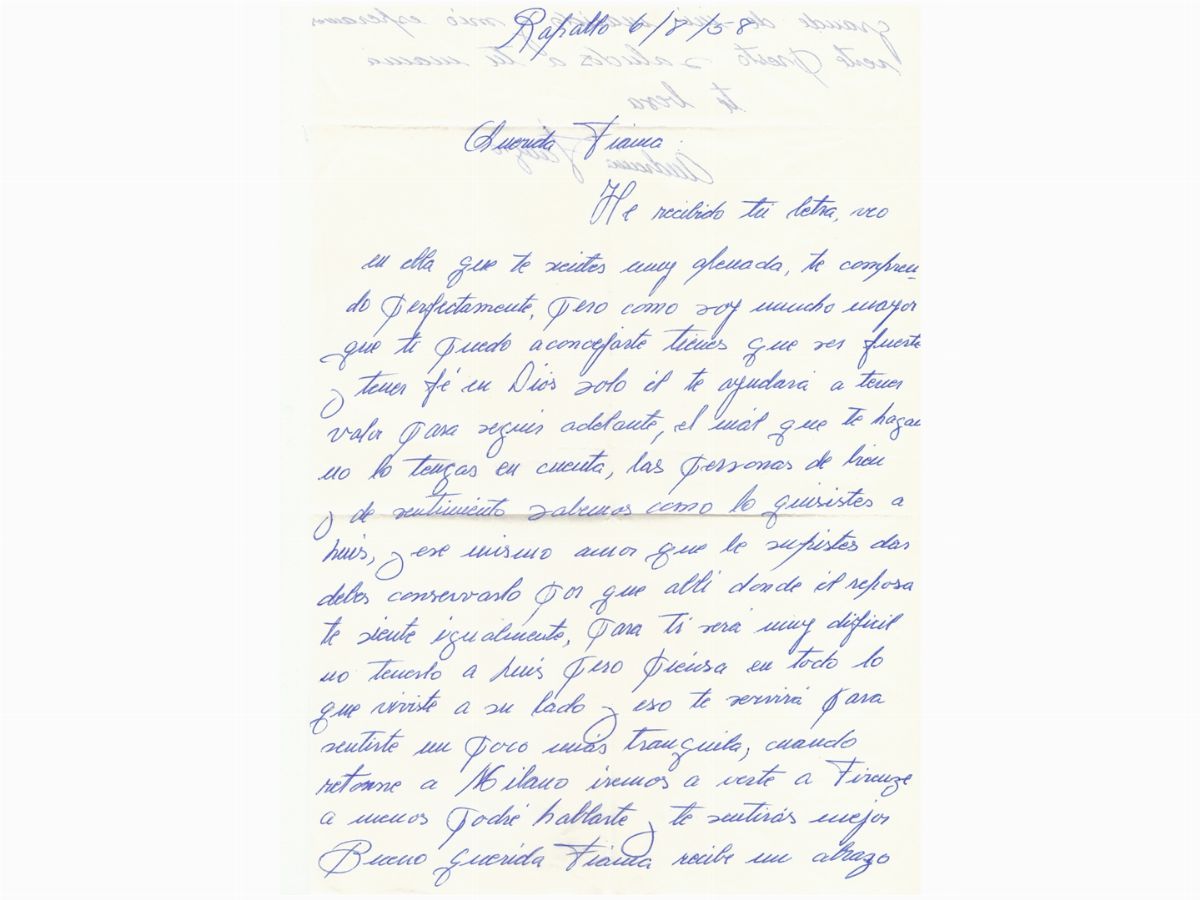 Rapallo 6/8/58
Querida Fiama
He recibido tu letra, veo
en ella que te sientes muy apenada, te compren-
do perfectamente, pero como soy mucho mayor
que tu puedo aconcejarte tienes que ser fuerte
y tener fé en Dios solo él te ayudará a tener
valor para seguir adelante, el mál que te hagan
no lo tengas en cuenta, las personas de bien
y de sentimiento sabemos como lo quisistes a
Luis, y ese mismo amor que le supistes dar
debes conservarlo por que alli donde él reposa
te siente igualmente, para ti será muy dificil
no tenerlo a Luis pero piénsa en todo lo
que viviste a su lado y eso te servirá para
sentirte un poco más tranquila, cuando
retorne a Milano iremos a verte a Firenze
a menos podré hablarte y te sentirás mejor
Bueno querida Fiama recibe un abrazo
grande de mio esperamos
verte presto saludos a tu mama
te besa